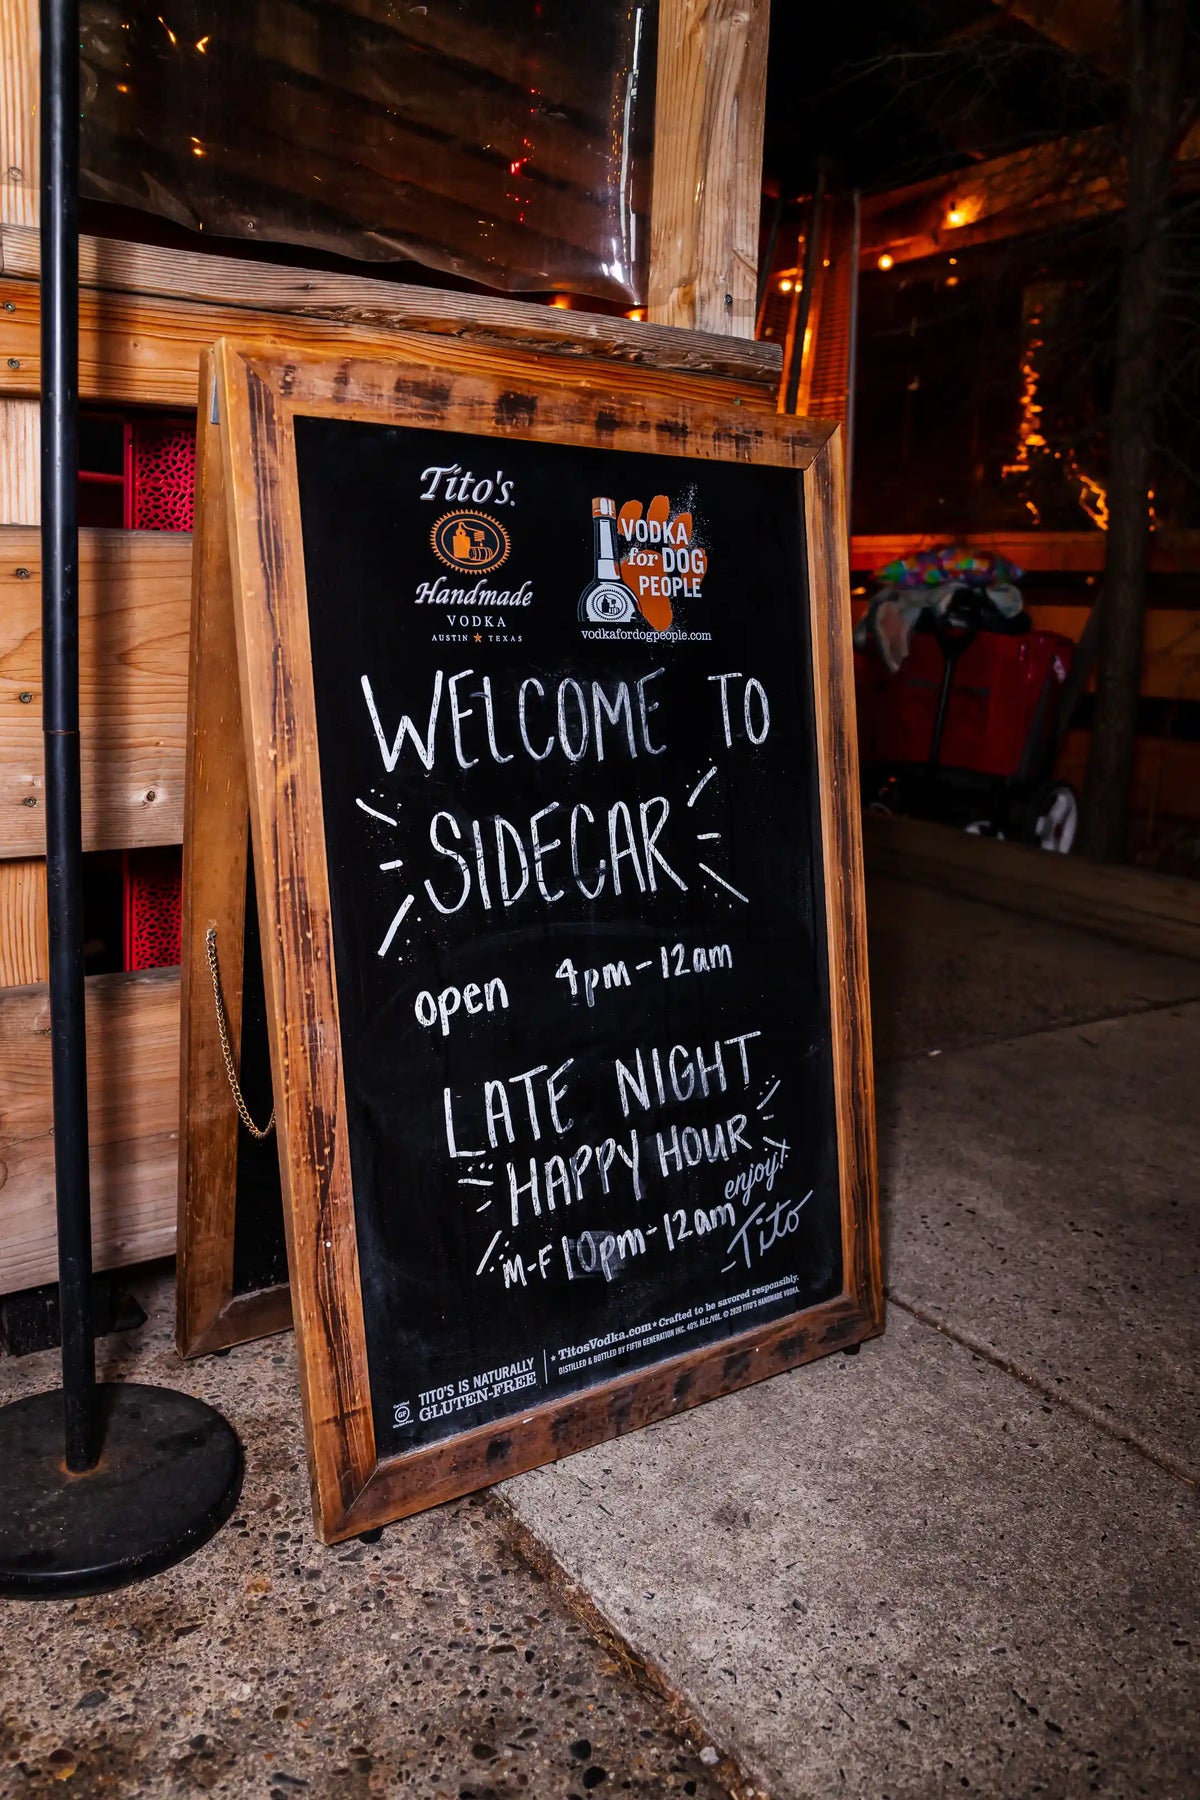 Tito's
Handmade
VODKA
AUSTIN ★ TEXAS
VODKA
for DOG
PEOPLE
vodkafordogpeople.com
WELCOME TO
SIDECAR
open 4pm-12am
LATE NIGHT
HAPPY HOUR
M-F 10pm-12am
enjoy!
-Tito
TITO'S IS NATURALLY
GLUTEN-FREE
★ TitosVodka.com ★ Crafted to be savored responsibly.
DISTILLED & BOTTLED BY FIFTH GENERATION INC. 40% ALC./VOL. © 2020 TITO'S HANDMADE VODKA.
GF